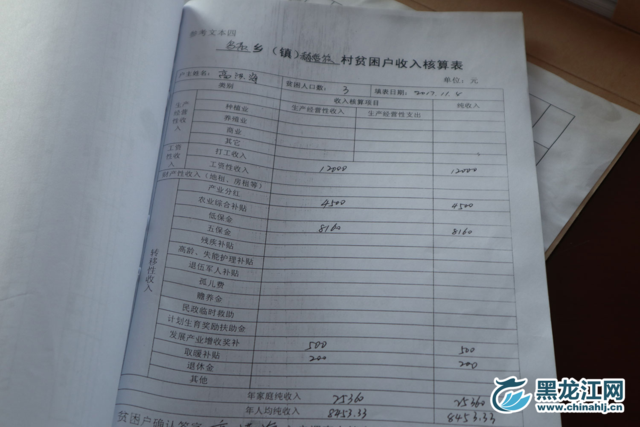 参考文本四
乡（镇） 村贫困户收入核算表
单位：元
户主姓名： 贫困人口数：3 填表日期：2017.11.8
类别 收入核算项目 纯收入
生产经营性收入 生产经营性支出
生产经营性收入
种植业
养殖业
商业
其它
工资性收入
打工收入
工资性收入 12000 12000
财产性收入（地租、房租等）
转移性收入
产业分红
农业综合补贴 4500 4500
低保金
五保金 8160 8160
残疾补贴
高龄、失能护理补贴
退伍军人补贴
孤儿费
赡养金
民政临时救助
计划生育奖励扶助金
发展产业增收奖补 500 500
取暖补贴 200 200
退休金
其他
年家庭纯收入 25360 25360
年人均纯收入 8453.33 8453.33
贫困户确认签字
黑龙江网
www.chinahlj.cn